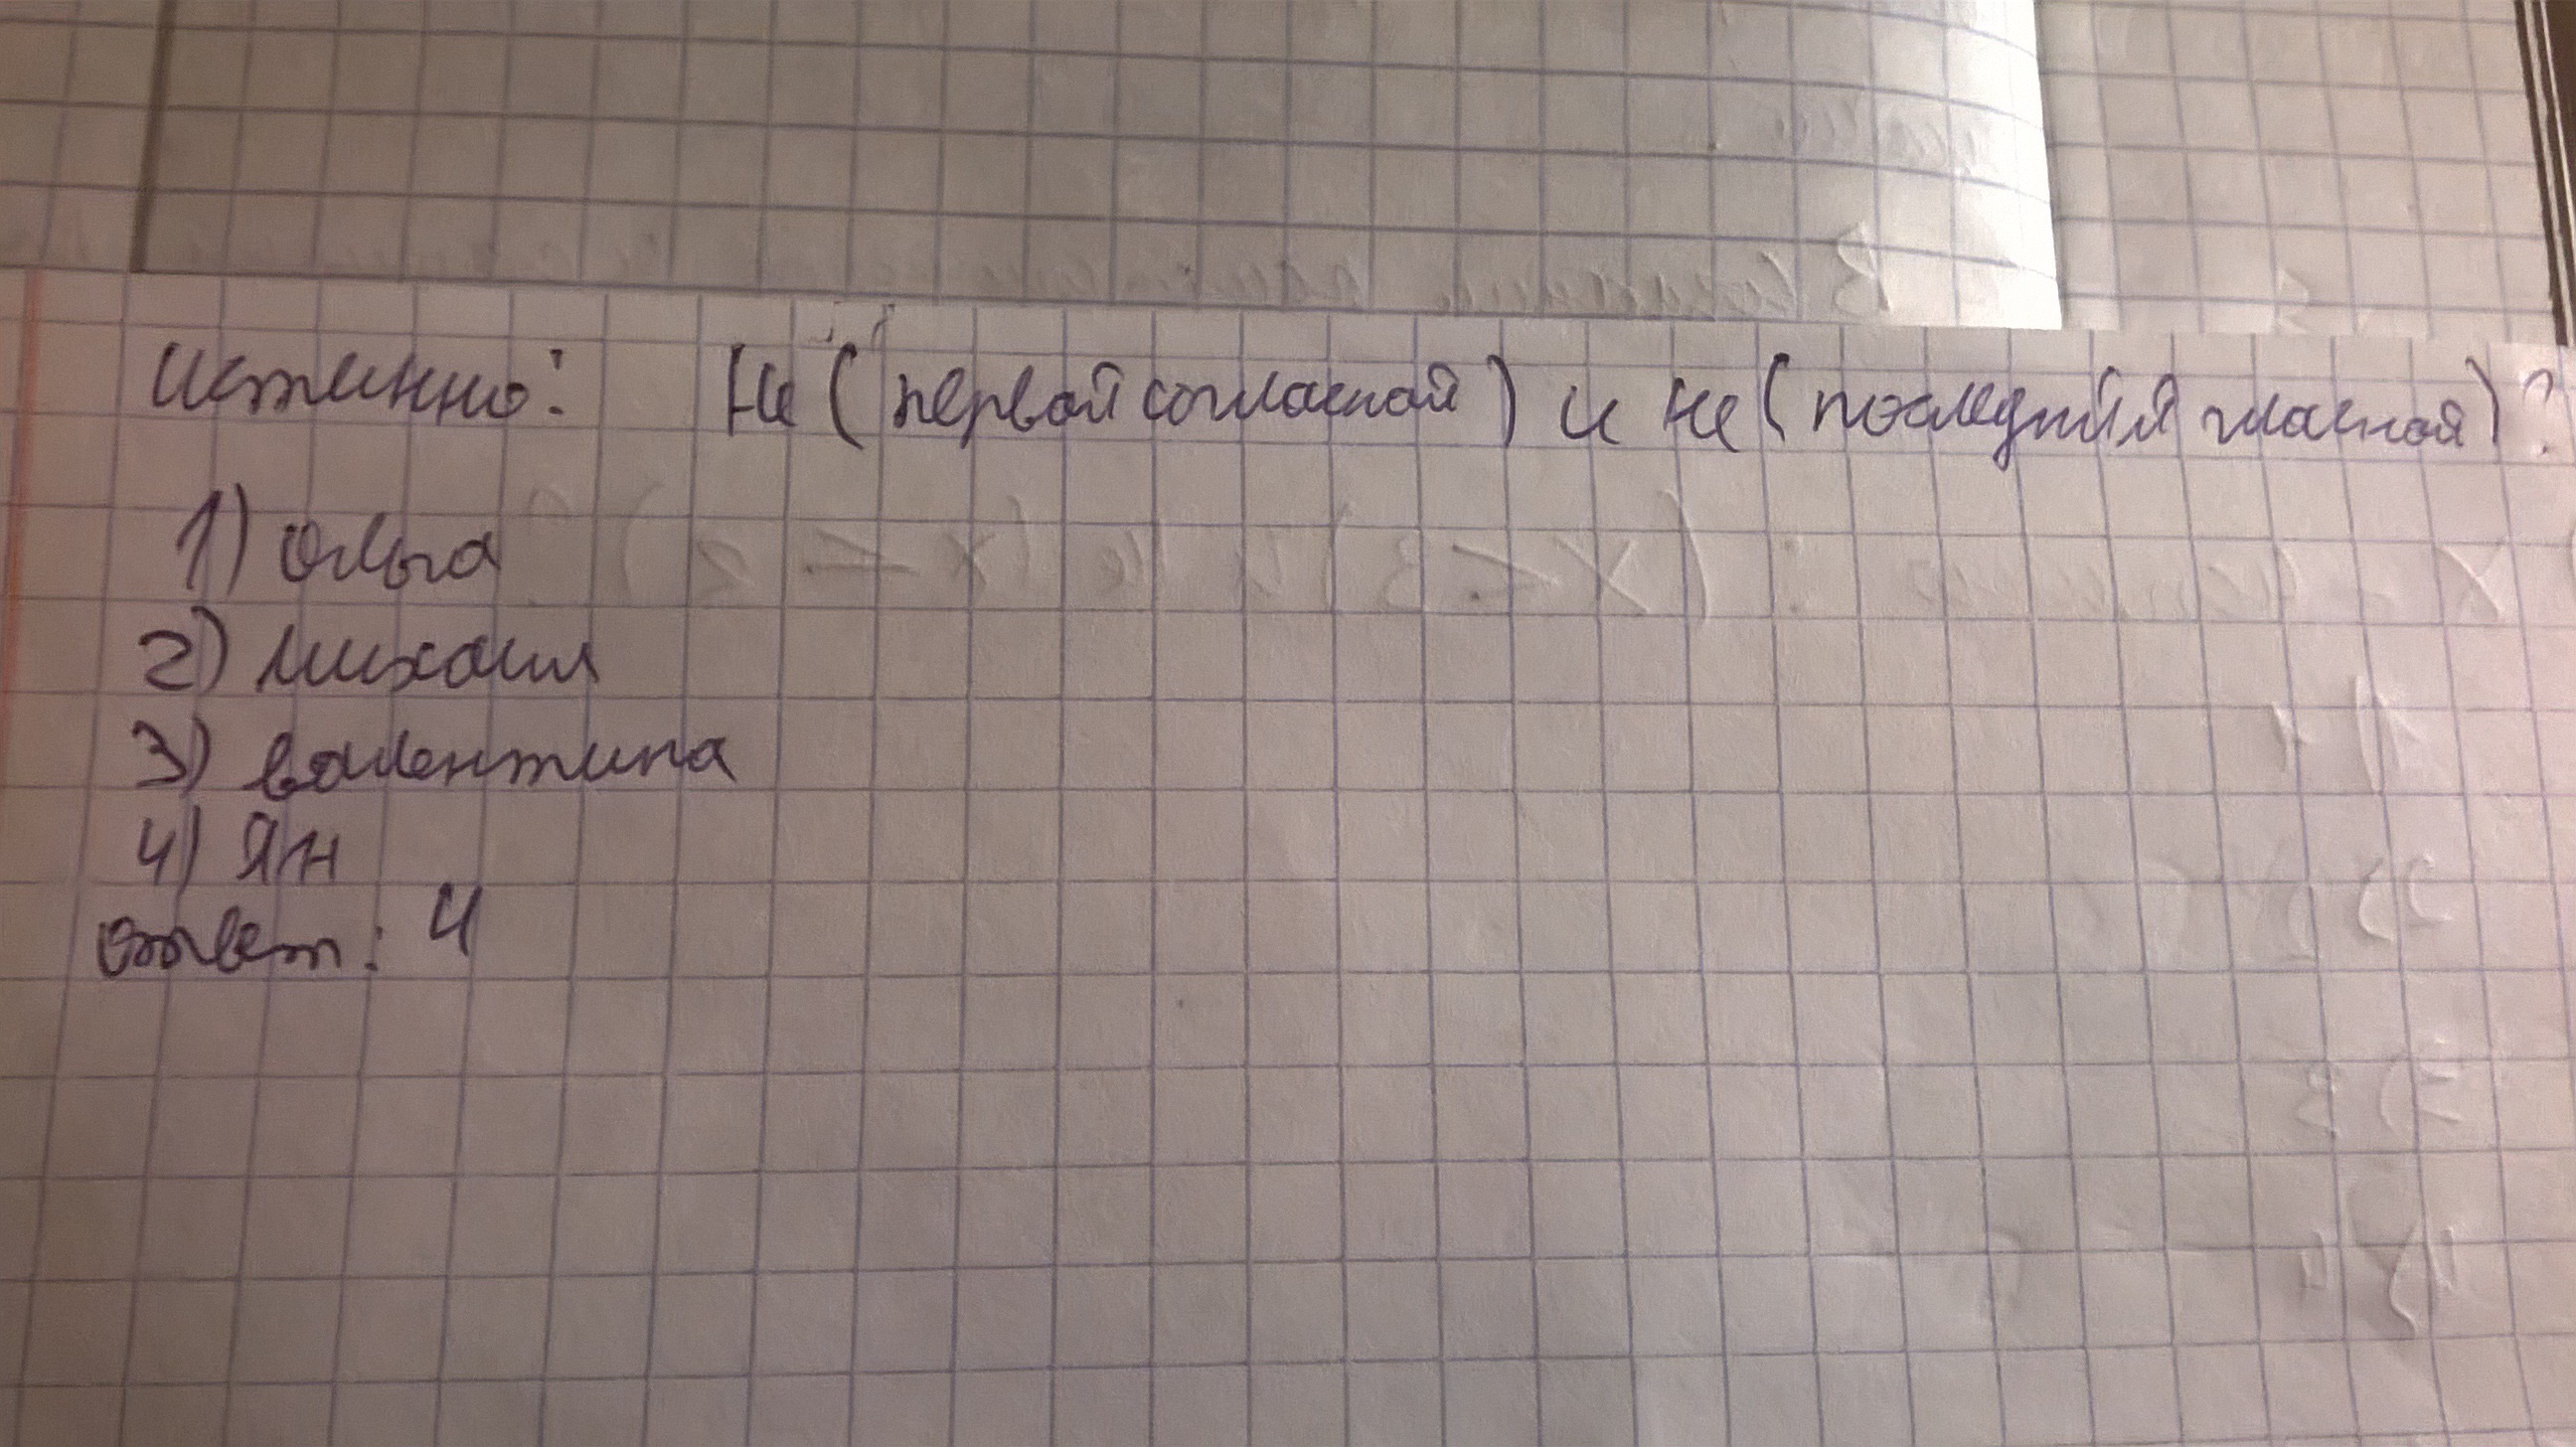 истинно: Не (первой согласной) и не (последней гласной)?
1) ольга
2) михаил
3) валентина
4) Ян
ответ: 4